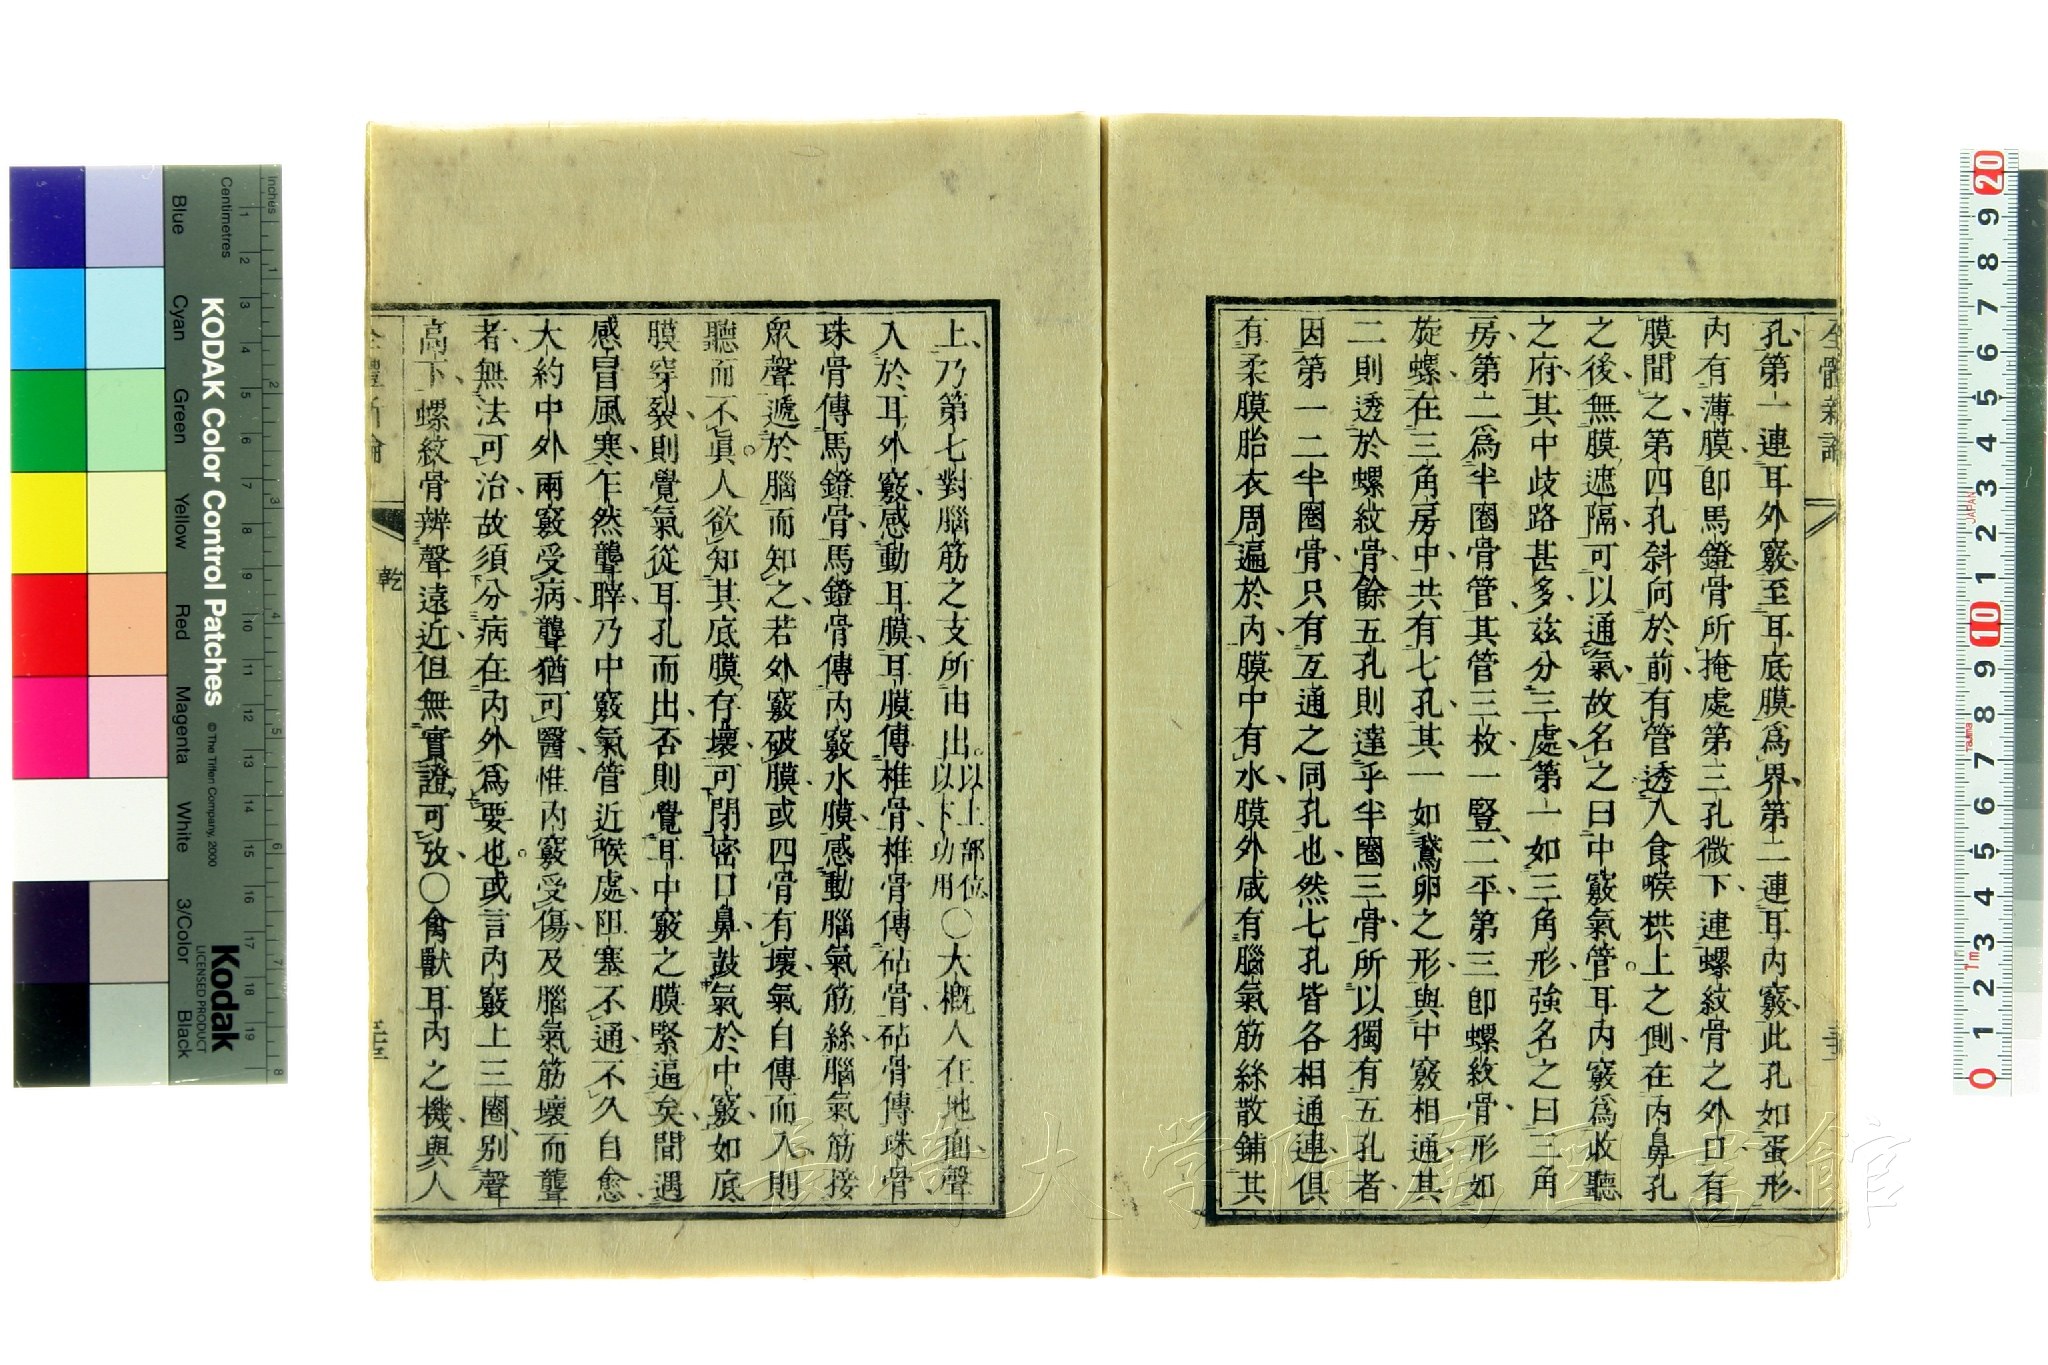 全體新論
孔、第一連耳外竅、至耳底膜爲界、第二連耳內竅、此孔如蛋形、
內有薄膜、卽馬鐙骨所掩處、第三孔微下、連螺紋骨之外口、有
膜間之、第四孔斜向於前、有管透入食喉拱上之側、在內鼻孔
之後、無膜遮隔、可以通氣、故名之曰中竅氣管。耳內竅爲收聽
之府、其中歧路甚多、茲分三處、第一如三角形、強名之曰三角
房、第二爲半圈骨管、其管三枚、一豎、二平、第三卽螺紋骨、形如
旋螺、在三角房中、共有七孔、其一如鵞卵之形、與中竅相通、其
二則透於螺紋骨、餘五孔則達乎半圈三骨、所以獨有五孔者、
因第一二半圈骨、只有互通之同孔也、然七孔皆各相通連、俱
有柔膜胎衣周遍於內、膜中有水、膜外咸有腦氣筋絲散鋪共
上、乃第七對腦筋之支所由出。以上部位以下功用〇大槪人在地面、聲
入於耳、外竅感動耳膜、耳膜傳椎骨、椎骨傳砧骨、砧骨傳珠骨
珠骨傳馬鐙骨、馬鐙骨傳內竅水膜、感動腦氣筋絲、腦氣筋接
眾聲遞於腦而知之、若外竅破膜、或四骨有壞、氣自傳而入、則
聽而不眞。人欲知其底膜存壞、可閉密口鼻、鼓氣於中竅、如底
膜穿裂、則覺氣從耳孔而出、否則覺耳中竅之膜緊逼矣、間遇
感冒風寒、乍然聾聤、乃中竅氣管近喉處、阻塞不通、不久自愈、
大約中外兩竅受病、聾猶可醫、惟內竅受傷、及腦氣筋壞而聾
者、無法可治、故須分病在內外爲要也。或言內竅上三圈、別聲
高下、螺紋骨辨聲遠近、但無實證可攷、〇禽獸耳內之機、與人
全體新論
乾